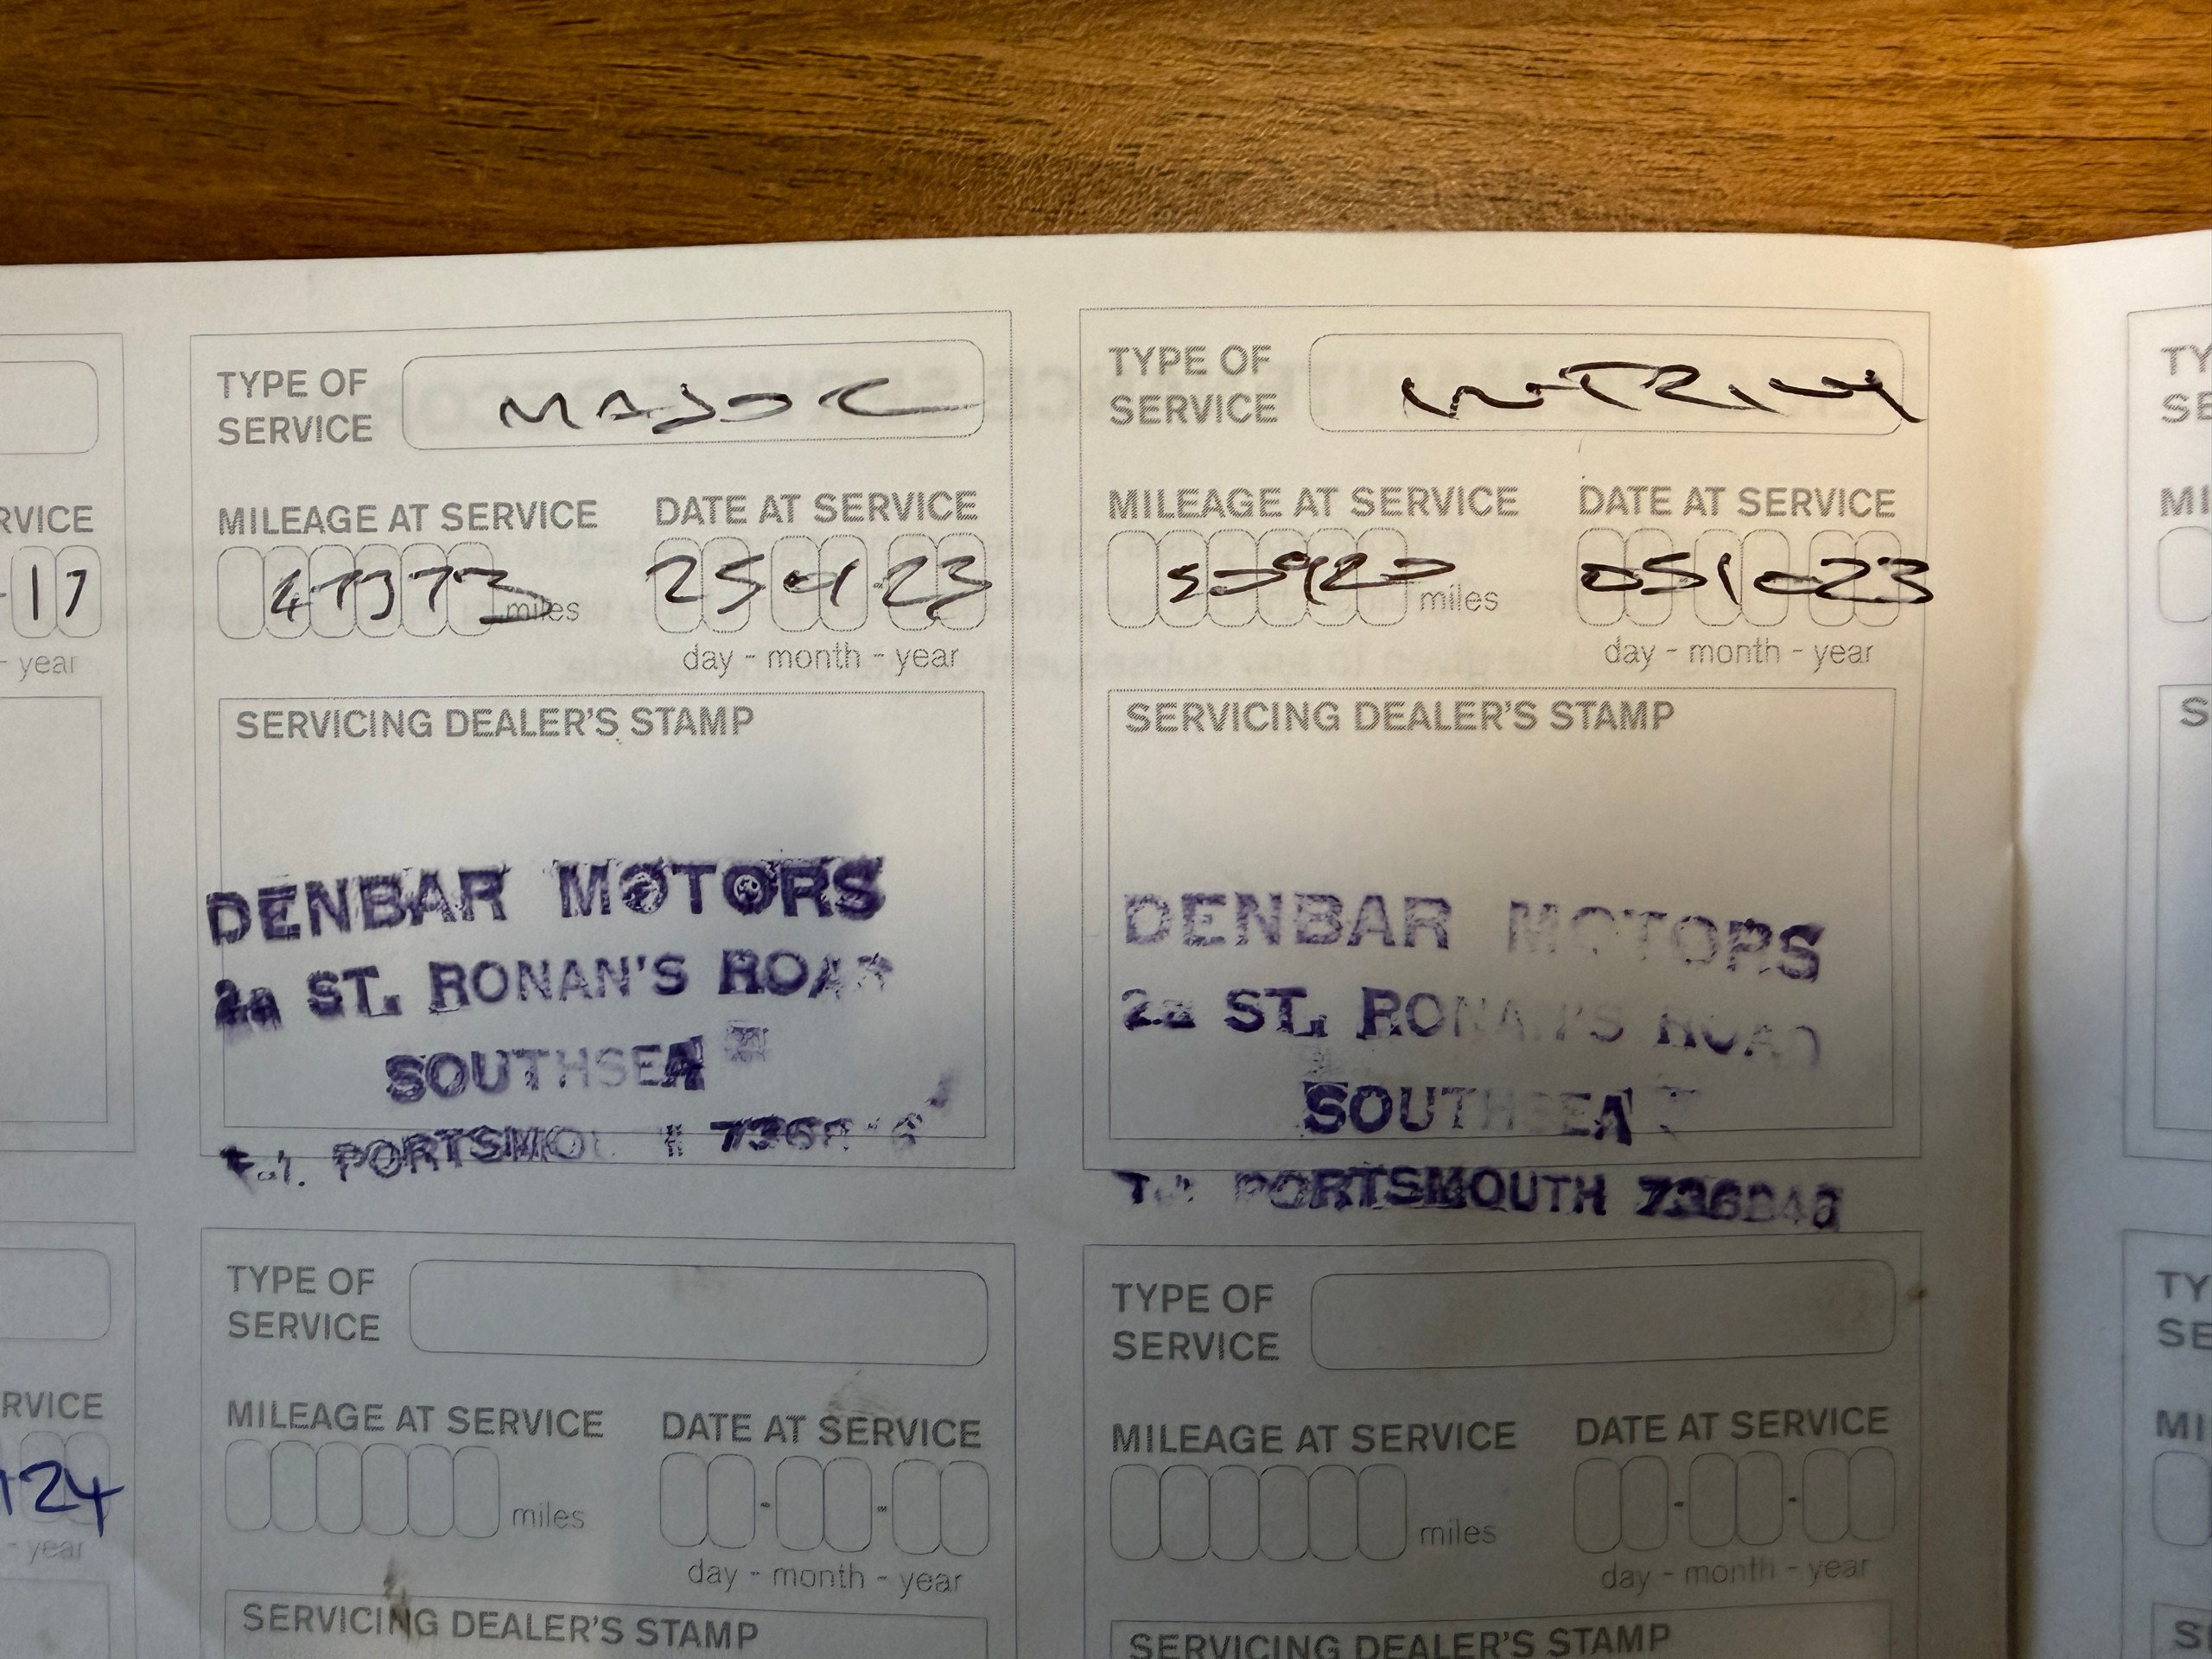 TYPE OF SERVICE MAJOR
MILEAGE AT SERVICE DATE AT SERVICE
47373 miles 25 01 23
day - month - year
SERVICING DEALER'S STAMP
DENBAR MOTORS
2a ST. RONAN'S ROAD
SOUTHSEA
Tel. PORTSMOUTH
TYPE OF SERVICE
MILEAGE AT SERVICE DATE AT SERVICE
miles 05 10 23
day - month - year
SERVICING DEALER'S STAMP
DENBAR MOTORS
2a ST. RONAN'S ROAD
SOUTHSEA
Tel. PORTSMOUTH 736846
RVICE
17
- year
TYPE OF SERVICE
MILEAGE AT SERVICE DATE AT SERVICE
miles
day - month - year
SERVICING DEALER'S STAMP
TYPE OF SERVICE
MILEAGE AT SERVICE DATE AT SERVICE
miles
day - month - year
SERVICING DEALER'S STAMP
RVICE
24
- year
TY
SE
MI
S
TY
SE
MI
S